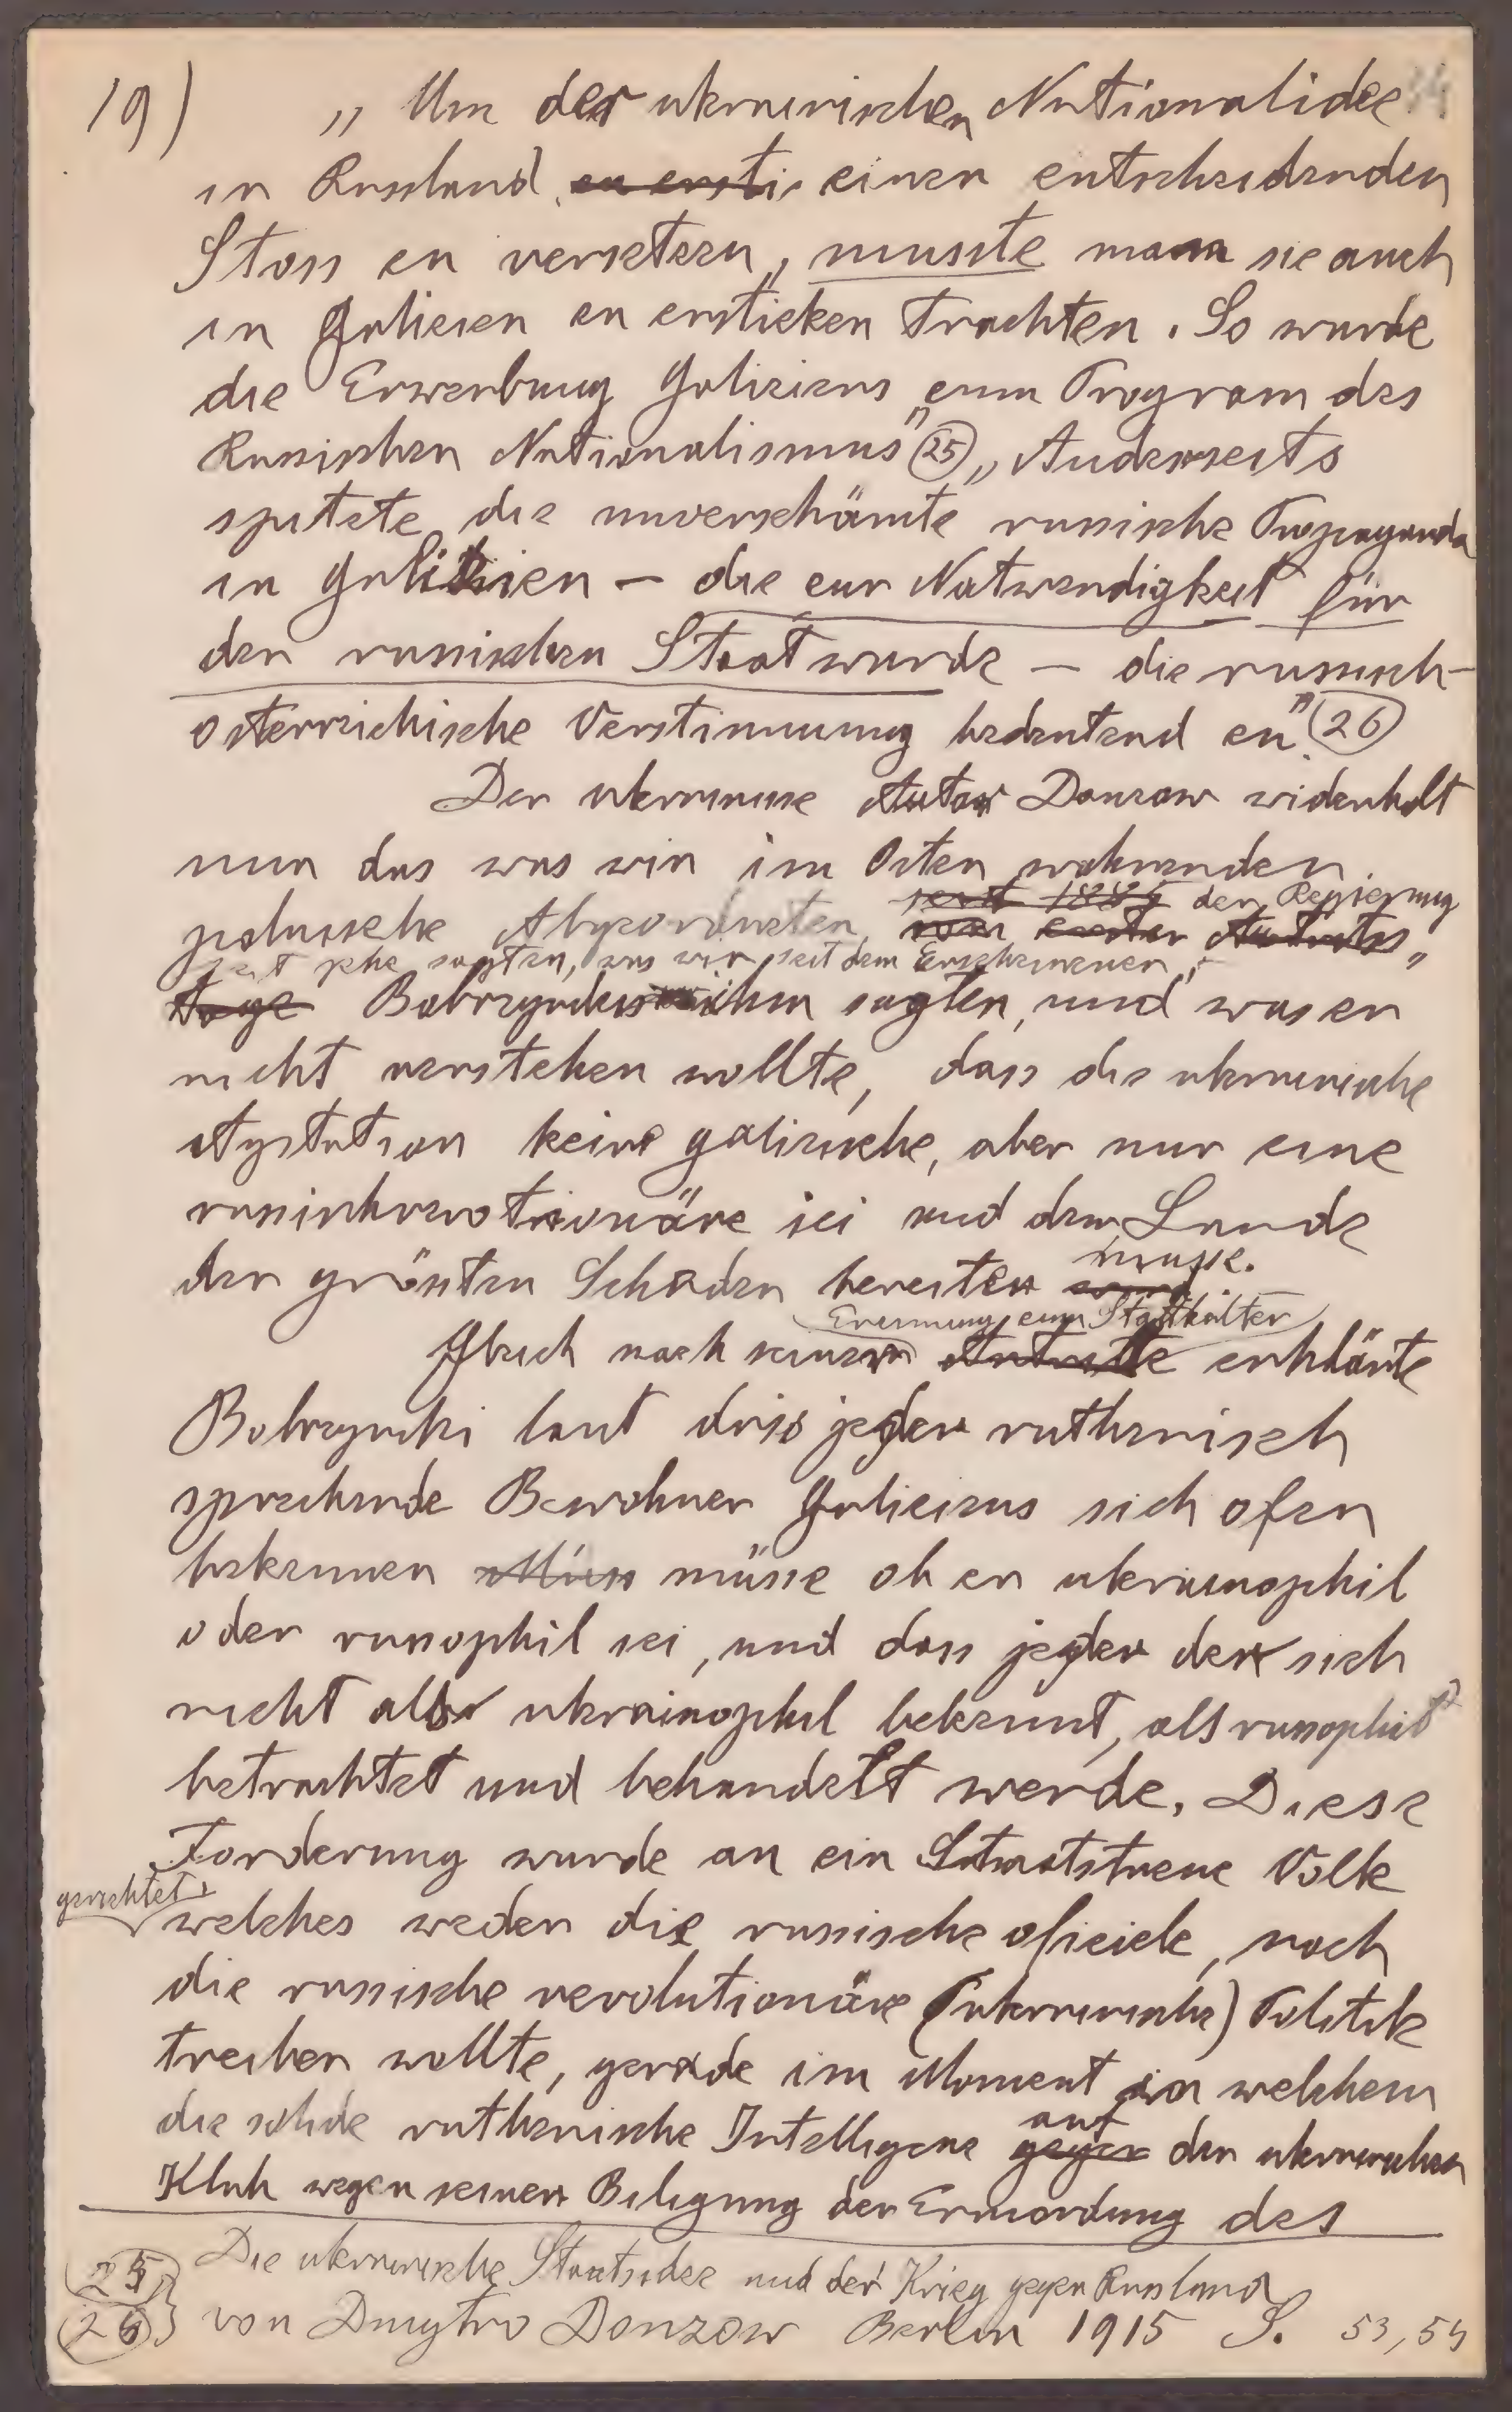 19) „Um der ukrainischen Nationalidee
in Russland zu ersti einen entscheidenden
Stoss zu versetzen, musste man sie auch
in Galizien zu ersticken trachten. So wurde
die Erwerbung Galiziens zum Program des
Russischen Nationalismus" (25) „Anderseits
spitzte die unverschämte russische Propaganda
in Galizien – die zur Notwendigkeit für
den russischen Staat wurde – die russisch-
österreichische Verstimmung bedeutend zu" (26)
Der ukrainise Autor Donzow widerholt
nun das was wir im Osten wohnenden
seit 1885 der Regierung
polnische Abgeordneten
sagten, was wir seit dem Erscheinenen
Tage Bobrzynskis ihm sagten, und was er
nicht verstehen wollte, dass die ukrainische
Agitation keine galizische, aber nur eine
sei und dem Lande
den grössten Schaden bereiten musse.
Erennung zum Statthalter
Gleich nach seiner Antritte erklärte
Bobrzynski laut dass jeder ruthenisch
sprechende Bewohner Galiziens sich ofen
bekennen müsse ob er ukrainophil
oder russophil sei, und dass jeder der sich
nicht als ukrainophil bekennt, als russophil
betrachtet und behandelt werde. Diese
Forderung wurde an ein Staatstreue Volk
gerichtet,
welches weder die russische oficiele, noch
die russische revolutionäre (ukrainische) Politik
treiben wollte, gerade im Moment in welchem
auf
die solide ruthenische Intelligenz gegen den ukrainischen
Klub wegen seiner Biligung der Ermordung des
25 Die ukrainische Staatsidee und der Krieg gegen Russland
26 von Dmytro Donzow Berlin 1915 S. 53, 54